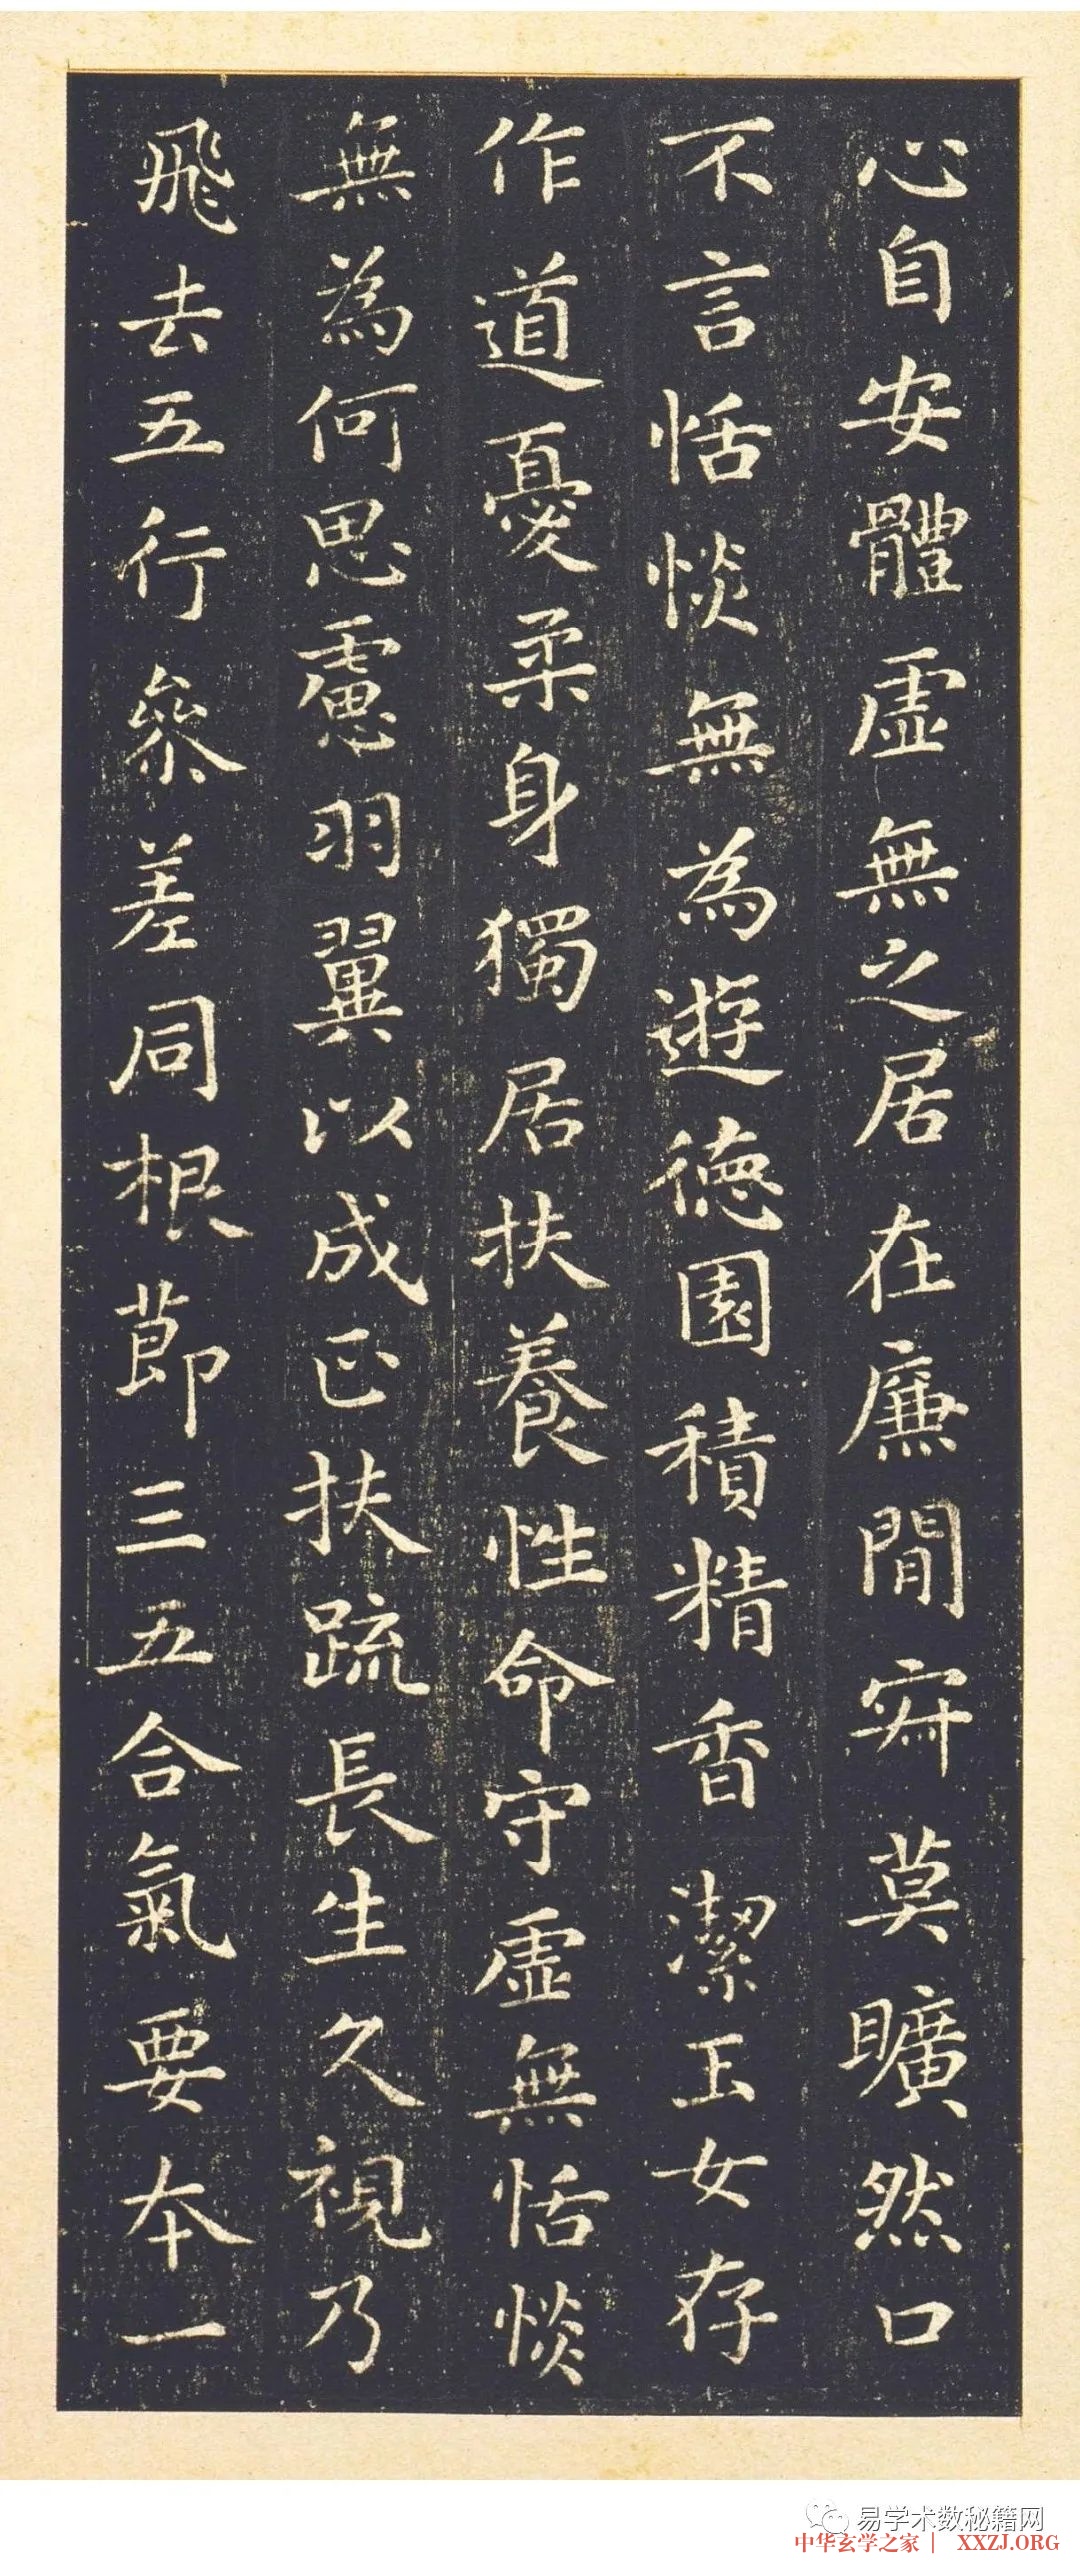 心自安體虛無之居在廉間𡧯莫曠然口
不言恬惔無為遊德園積精香潔玉女存
作道憂柔身獨居扶養性命守虛無恬惔
無為何思慮羽翼以成正扶疏長生久視乃
飛去五行參差同根節三五合氣要本一
易学术数秘籍网
中华玄学之家 | XXZJ.ORG